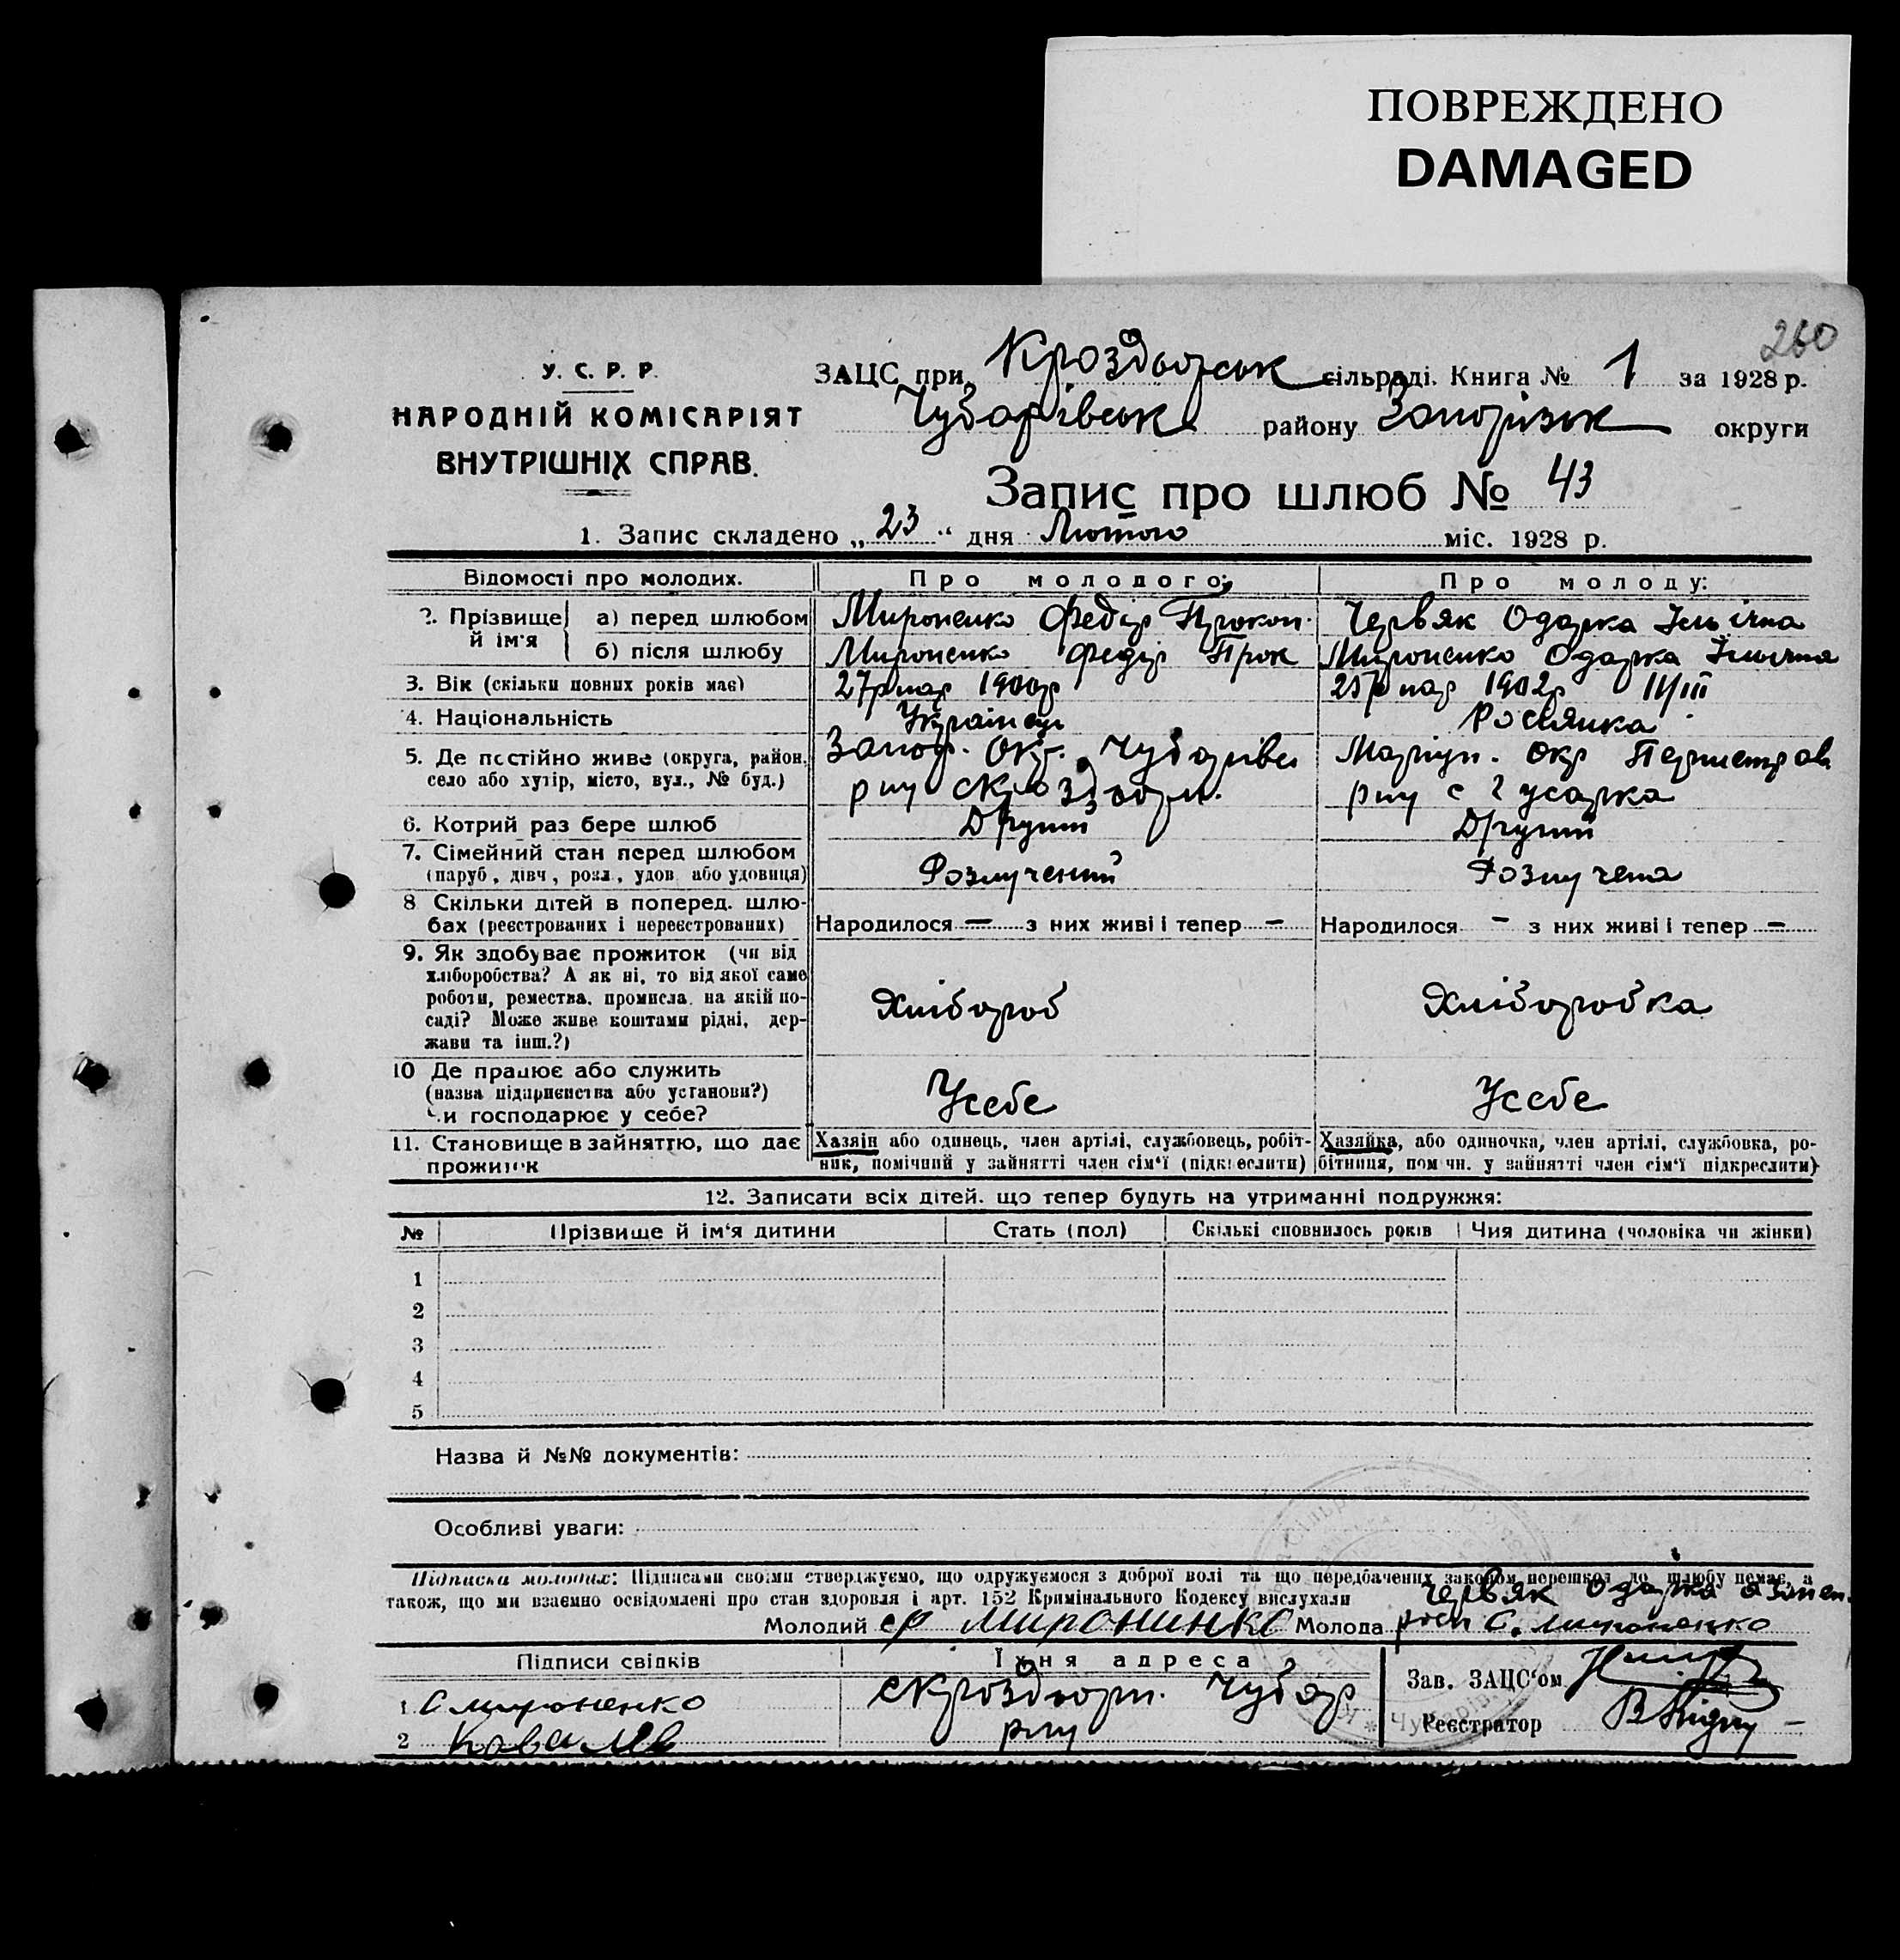 ПОВРЕЖДЕНО
DAMAGED
260
У. С. Р. Р.
НАРОДНІЙ КОМІСАРІЯТ
ВНУТРІШНІХ СПРАВ.
ЗАЦС при Кроздворськ сільраді. Книга № 1 за 1928 р.
Чубарівськ району Запорізьк округи
Запис про шлюб № 43
1. Запис складено „23“ дня Лютого міс. 1928 р.
Відомості про молодих. Про молодого: Про молоду:
2. Прізвище й ім'я а) перед шлюбом Мироненко Федір Прокоп. Червяк Одарка Ільїчна
б) після шлюбу Мироненко Федір Прок Мироненко Одарка Ільїчна
3. Вік (скільки повних років має) 27р нар 1900р 25р нар 1902р 11/III
4. Національність Українец Росіянка
5. Де постійно живе (округа, район, Запор. Окр. Чубарівс Маріуп. окр Першетрав
село або хутір, місто, вул., № буд.) рну с Кроздворп. рну с Гусарка
6. Котрий раз бере шлюб Другий Другий
7. Сімейний стан перед шлюбом
(паруб, дівч, розл, удов. або удовиця) Розлучений Розлучена
8 Скільки дітей в поперед. шлю-
бах (реєстрованих і нереєстрованих) Народилося — з них живі і тепер — Народилося — з них живі і тепер —
9. Як здобуває прожиток (чи від
хліборобства? А як ні, то від якої саме
роботи, ремества, промисла, на якій по-
саді? Може живе коштами рідні, дер-
жави та інш.?) Хлібороб Хліборобка
10 Де працює або служить
(назва підприємства або установи?)
Чи господарює у себе? Усебе Усебе
11. Становище в зайняттю, що дає Хазяїн або одинець, член артілі, службовець, робіт- Хазяйка, або одиночка, член артілі, службовка, ро-
прожиток ник, помічний у зайнятті член сім'ї (підкреслити) бітниця, помічн. у зайнятті член сім'ї підкреслити)
12. Записати всіх дітей, що тепер будуть на утриманні подружжя:
№ Прізвище й ім'я дитини Стать (пол) Скількі сповнилось років Чия дитина (чоловіка чи жінки)
1
2
3
4
5
Назва й №№ документів:
Особливі уваги:
Підписка молодих: Підписами своїми стверджуємо, що одружуємося з доброї волі та що передбачених законом перешкод до шлюбу немає, а
також, що ми взаємно освідомлені про стан здоровля і арт. 152 Кримінального Кодексу вислухали Червяк Одарка
Молодий Ф Миронинко Молода С. Мироненко
Підписи свідків Їхня адреса Зав. ЗАЦС'ом
1 С Мироненко с Кроздворп. Чубар
2 Ковалів рну Реєстратор